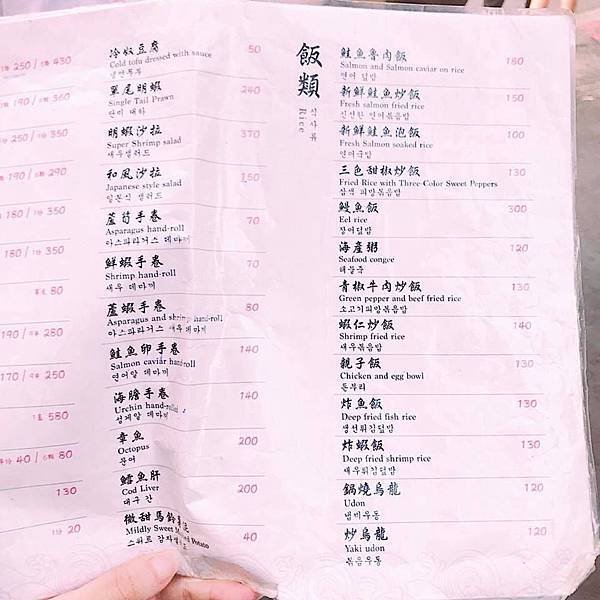 250 / 430
190 / 360
370 / 350
190 / 290
180 / 350
180 / 350
80
190 / 280
170 / 250
580
40 / 80
130
20
冷奴豆腐 50
Cold tofu dressed with sauce
냉연두부
單尾明蝦 240
Single Tail Prawn
단미 대하
明蝦沙拉 350
Super Shrimp salad
새우샐러드
和風沙拉 150
Japanese style salad
일본식 샐러드
蘆筍手卷 70
Asparagus hand-roll
아스파라거스 데마끼
鮮蝦手卷 70
Shrimp hand-roll
새우 데마끼
蘆蝦手卷 80
Asparagus and shrimp hand-roll
아스파라거스 새우데마끼
鮭魚卵手卷 140
Salmon caviar hand-roll
연어알 데마끼
海膽手卷 140
Urchin hand-rolled
성게알 데마끼
章魚 200
Octopus
문어
鱈魚肝 200
Cod Liver
대구 간
微甜馬鈴薯 40
Mildly Sweet Potato
스위트 감자샐러드
飯類
식사류
Rice
鮭魚魯肉飯 180
Salmon and Salmon caviar on rice
연어 덮밥
新鮮鮭魚炒飯 150
Fresh salmon fried rice
신선한 연어볶음밥
新鮮鮭魚泡飯 100
Fresh Salmon soaked rice
연어국밥
三色甜椒炒飯 130
Fried Rice with Three-Color Sweet Peppers
삼색 피망볶음밥
鰻魚飯 300
Eel rice
장어덮밥
海產粥 120
Seafood congee
해물죽
青椒牛肉炒飯 130
Green pepper and beef fried rice
소고기피망볶음밥
蝦仁炒飯 140
Shrimp fried rice
새우볶음밥
親子飯 130
Chicken and egg bowl
돈부리
炸魚飯 130
Deep fried fish rice
생선튀김덮밥
炸蝦飯 130
Deep fried shrimp rice
새우튀김덮밥
鍋燒烏龍 120
Udon
냄비우동
炒烏龍 120
Yaki udon
볶음우동